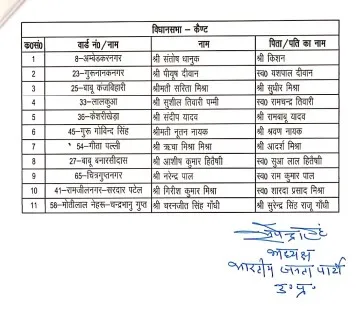 विधानसभा – कैण्ट
क०सं० वार्ड नं०/नाम नाम पिता/पति का नाम
1 8-अम्बेडकरनगर श्री संतोष धानुक श्री किशन
2 23-गुरूनानकनगर श्री पीयूष दीवान स्व० यशपाल दीवान
3 25-बाबू कंजबिहारी श्रीमती सरिता मिश्रा श्री सुधीर मिश्रा
4 33-लालकुआ श्री सुशील तिवारी पम्मी स्व० रामचन्द्र तिवारी
5 36-केशरीखेड़ा श्री संदीप यादव श्री रामबाबू यादव
6 45-गुरू गोविन्द सिंह श्रीमती नूतन नायक श्री श्रवण नायक
7 54-गीता पल्ली श्री ऋचा मिश्रा मिश्रा श्री आदर्श मिश्रा
8 27-बाबू बनारसीदास श्री आशीष कुमार हितैषी स्व० सुआ लाल हितैषी
9 65-चित्रगुप्तनगर श्री नरेन्द्र पाल स्व० राम कुमार पाल
10 41-रामजीलनगर-सरदार पटेल श्री गिरीश कुमार मिश्रा स्व० शारदा प्रसाद मिश्रा
11 58-मोतीलाल नेहरू-चन्द्रभानु गुप्त श्री चरनजीत सिंह गाँधी श्री सुरेन्द्र सिंह राजू गाँधी
अध्यक्ष
भारतीय जनता पार्टी
उ०प्र०